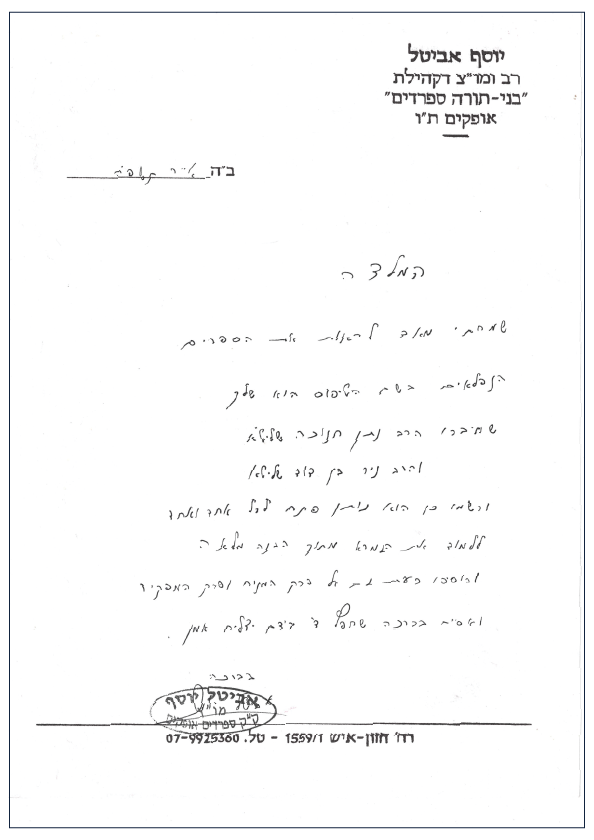 יוסף אביטל
רב ומו"צ דקהילת
"בני-תורה ספרדים"
אופקים ת"ו
ב"ה
המלצה
שמחתי מאוד לראות את הספרים
הנפלאים בשם הטיפוס הוא שלך
שחיברו הרב נתן חנוכה שליט"א
והרב ניר בן דוד שליט"א
וכשמו כן הוא נותן פתח לכל אחד ואחד
ללמוד את הגמרא מתוך הבנה מלאה
והוסיפו כעת גם על פרק המניח ופרק
ואסיים בברכה שחפץ ד' בידם יצליח אמן.
בברכה
אביטל יוסף
מו"צ
ק"ק ספרדים אופקים
רח' חזון-איש 1559/1 - טל. 07-9925360